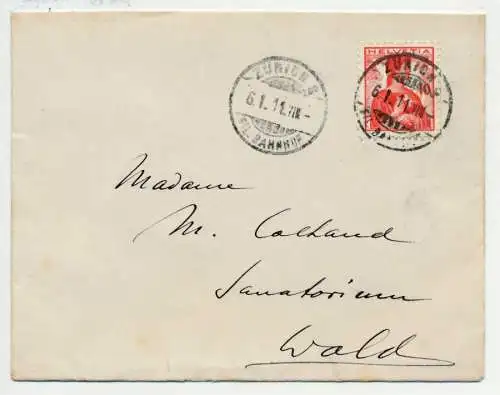 ZÜRICH.8
6.1.11.VIII-
FIL. BAHNHOF
HELVETIA
ZÜRICH.8
6.1.11.VIII-
Madame
M. Colhand
Sanatorium
Wald